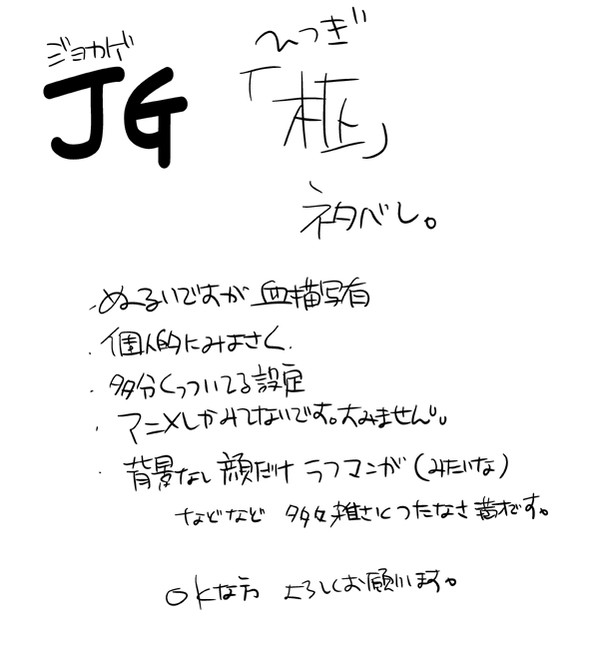 ジョカゲ
JG
ひつぎ
「柩」
ネタバレ。
・ぬるいですが 血描写有
・個人的にみまさく
・多分くっついてる設定
・アニメしかみてないです。大みません。
・背景なし 顔だけ ラフマンガ(みたいな)
などなど 多々雑さとつたなさ満才です。
OKな方 よろしくお願いします。